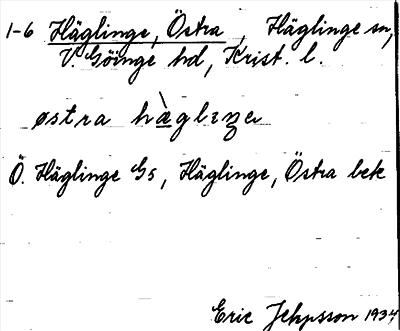 1-6 Häglinge, Östra, Häglinge sn,
V. Göinge hd, Krist. l.
østra hàglıŋa
Ö. Häglinge Gs, Häglinge, Östra bek
Eric Jepsson 1934